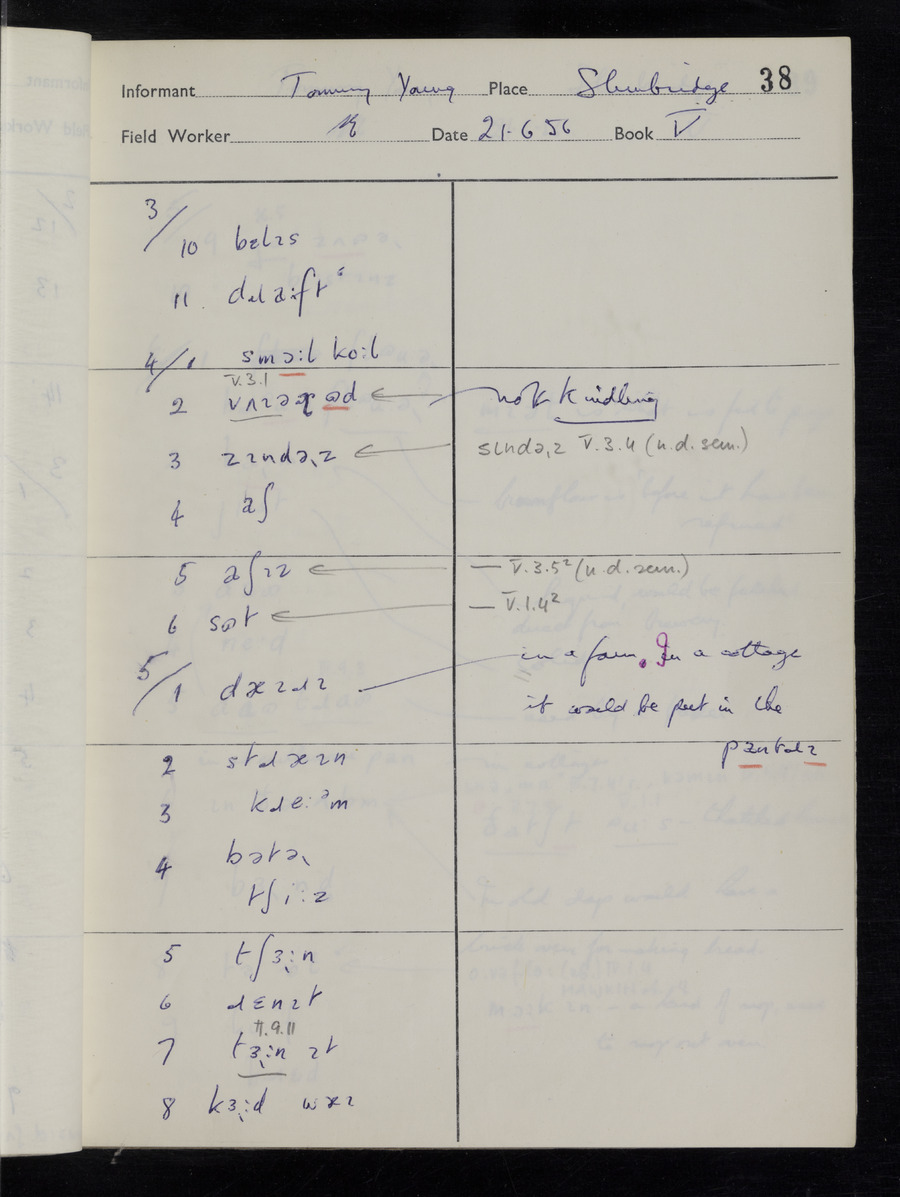 Informant Tommy Young Place Slimbridge 38
Field Worker Date 21.6.56 Book V
3/
10 bɛlɪs
11 dɹaːft
4/1 smɔːl kɔːl
V.3.1
2 ← not kindling
3 zɪndəɻz ← sɪndəɻz V.3.4 (n.d. sem.)
4 aʃ
5 aʃɪz ← — V.3.5² (n.d. sem.)
6 sɒt ← — V.1.4²
5/1 dæɪɹɪ — in a farm. In a cottage
it would be put in the
pantɹɪ
2 stɹæɪn
3 kɹeːᵊm
4 bətəɻ
tʃiːz
5 tʃɜ˞ːn
6 ɹɛnɪt
V.9.11
7 tɜ˞ːn ɪt
8 kɜ˞ːd wæɪ